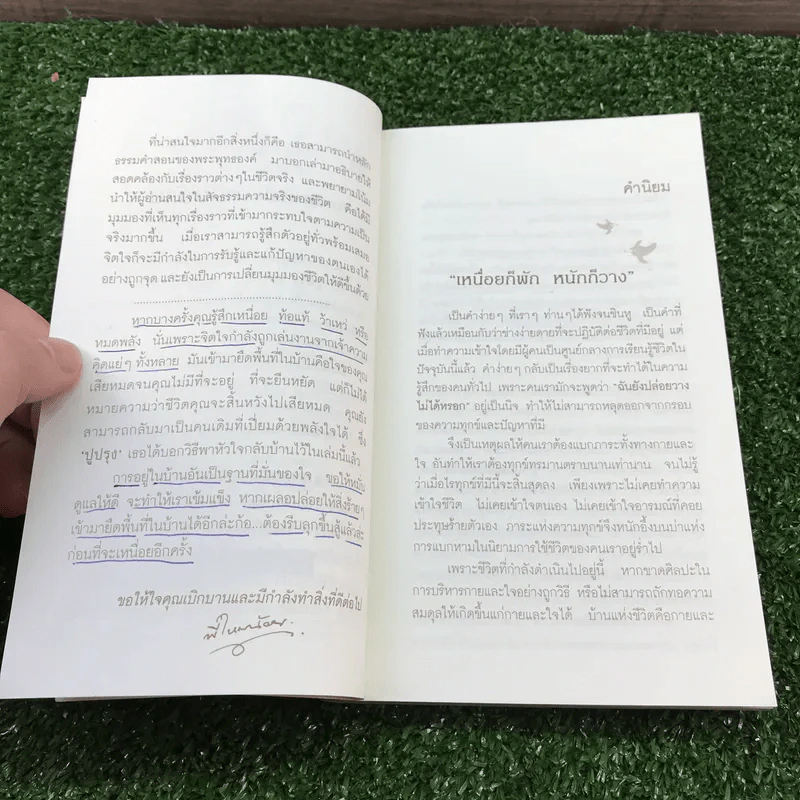 ที่น่าสนใจมากอีกสิ่งหนึ่งก็คือ เธอสามารถนำหลัก
ธรรมคำสอนของพระพุทธองค์ มาบอกเล่ามาอธิบายให้
สอดคล้องกับเรื่องราวต่างๆในชีวิตจริง และพยายามโน้ม
นำให้ผู้อ่านสนใจในสัจธรรมความจริงของชีวิต คือได้มี
มุมมองที่เห็นทุกเรื่องราวที่เข้ามากระทบใจตามความเป็น
จริงมากขึ้น เมื่อเราสามารถรู้สึกตัวอยู่ทั่วพร้อมเสมอ
จิตใจก็จะมีกำลังในการรับรู้และแก้ปัญหาของตนเองได้
อย่างถูกจุด และยังเป็นการเปลี่ยนมุมมองชีวิตให้ดีขึ้นด้วย
หากบางครั้งคุณรู้สึกเหนื่อย ท้อแท้ ว้าเหว่ หรือ
หมดพลัง นั่นเพราะจิตใจกำลังถูกเล่นงานจากเจ้าความ
คิดแย่ๆ ทั้งหลาย มันเข้ามายึดพื้นที่ในบ้านคือใจของคุณ
เสียหมดจนคุณไม่มีที่จะอยู่ ที่จะยืนหยัด แต่ก็ไม่ได้
หมายความว่าชีวิตคุณจะสิ้นหวังไปเสียหมด คุณยัง
สามารถกลับมาเป็นคนเดิมที่เปี่ยมด้วยพลังใจได้ ซึ่ง
'ปูปรุง' เธอได้บอกวิธีพาหัวใจกลับบ้านไว้ในเล่มนี้แล้ว
การอยู่ในบ้านอันเป็นฐานที่มั่นของใจ ขอให้หมั่น
ดูแลให้ดี จะทำให้เราเข้มแข็ง หากเผลอปล่อยให้สิ่งร้ายๆ
เข้ามายึดพื้นที่ในบ้านได้อีกล่ะก้อ...ต้องรีบลุกขึ้นสู้แล้วล่ะ
ก่อนที่จะเหนื่อยอีกครั้ง
ขอให้ใจคุณเบิกบานและมีกำลังทำสิ่งที่ดีต่อไป
คำนิยม
"เหนื่อยก็พัก หนักก็วาง"
เป็นคำง่ายๆ ที่เราๆ ท่านๆได้ฟังจนชินหู เป็นคำที่
ฟังแล้วเหมือนกับว่าช่างง่ายดายที่จะปฏิบัติต่อชีวิตที่มีอยู่ แต่
เมื่อทำความเข้าใจโดยมีผู้คนเป็นศูนย์กลางการเรียนรู้ชีวิตใน
ปัจจุบันนี้แล้ว คำง่ายๆ กลับเป็นเรื่องยากที่จะทำได้ในความ
รู้สึกของคนทั่วไป เพราะคนเรามักจะพูดว่า 'ฉันยังปล่อยวาง
ไม่ได้หรอก' อยู่เป็นนิจ ทำให้ไม่สามารถหลุดออกจากกรอบ
ของความทุกข์และปัญหาที่มี
จึงเป็นเหตุผลให้คนเราต้องแบกภาระทั้งทางกายและ
ใจ อันทำให้เราต้องทุกข์ทรมานตราบนานเท่านาน จนไม่รู้
ว่าเมื่อไรทุกข์ที่มีนี้จะสิ้นสุดลง เพียงเพราะไม่เคยทำความ
เข้าใจชีวิต ไม่เคยเข้าใจตนเอง ไม่เคยเข้าใจอารมณ์ที่คอย
ประทุษร้ายตัวเอง ภาระแห่งความทุกข์จึงหนักอึ้งบนบ่าแห่ง
การแบกหามในนิยามการใช้ชีวิตของคนเราอยู่ร่ำไป
เพราะชีวิตที่กำลังดำเนินไปอยู่นี้ หากขาดศิลปะใน
การบริหารกายและใจอย่างถูกวิธี หรือไม่สามารถถักทอความ
สมดุลให้เกิดขึ้นแก่กายและใจได้ บ้านแห่งชีวิตคือกายและ